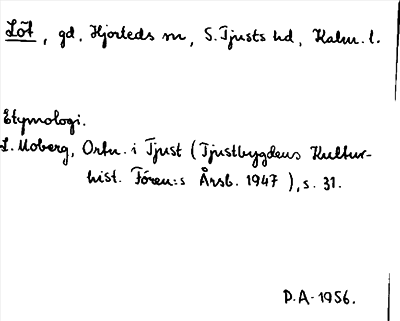 Löt, gd, Hjorteds sn, S. Tjusts hd, Kalm. l.
Etymologi.
L. Moberg, Ortn. i Tjust (Tjustbygdens Kultur-
hist. Fören:s Årsb. 1947), s. 31.
D.A. 1956.